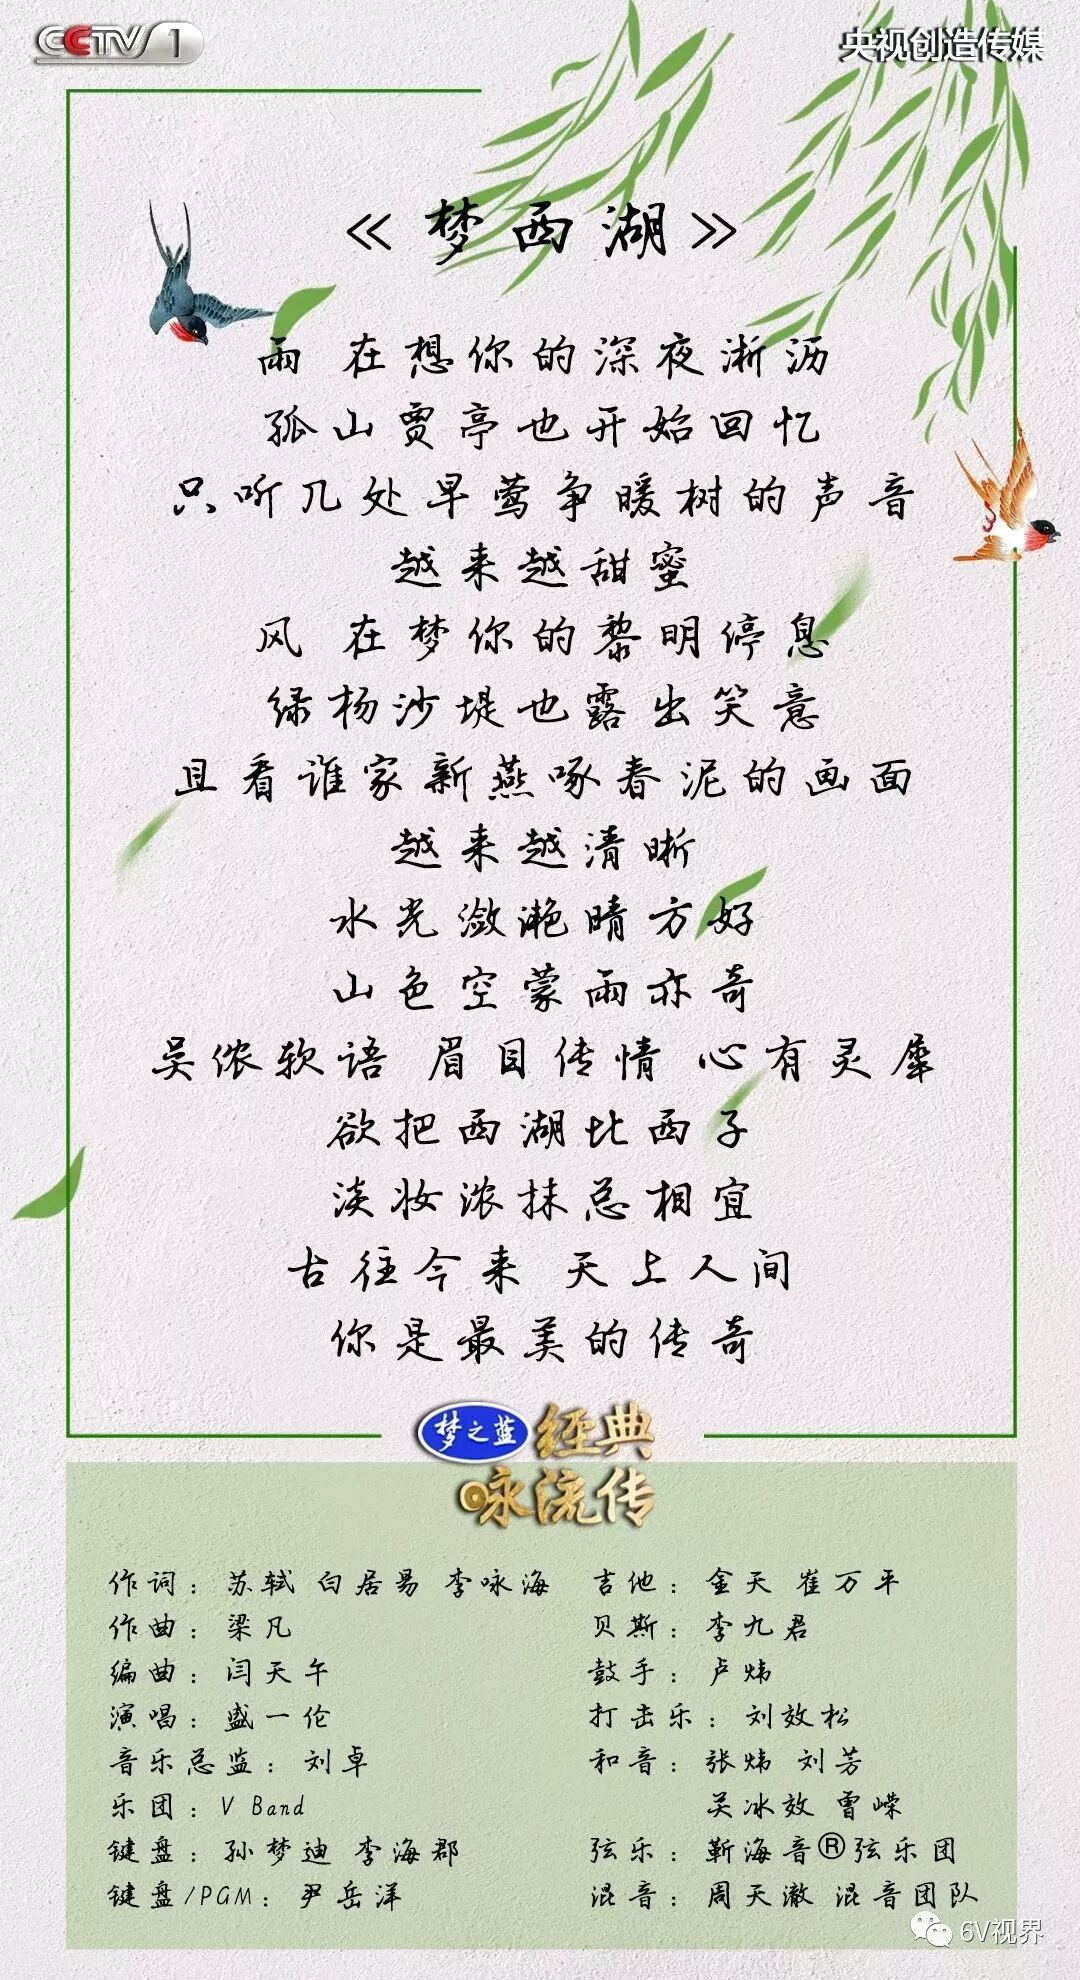 CCTV 1
央视创造传媒
《梦西湖》
雨 在想你的深夜淅沥
孤山贾亭也开始回忆
只听几处早莺争暖树的声音
越来越甜蜜
风 在梦你的黎明停息
绿杨沙堤也露出笑意
且看谁家新燕啄春泥的画面
越来越清晰
水光潋滟晴方好
山色空蒙雨亦奇
吴侬软语 眉目传情 心有灵犀
欲把西湖比西子
淡妆浓抹总相宜
古往今来 天上人间
你是最美的传奇
梦之蓝 经典
咏流传
作词：苏轼 白居易 李咏海
作曲：梁凡
编曲：闫天午
演唱：盛一伦
音乐总监：刘卓
乐团：V Band
键盘：孙梦迪 李海郡
键盘/PGM：尹岳洋
吉他：金天 崔万平
贝斯：李九君
鼓手：卢炜
打击乐：刘效松
和音：张炜 刘芳
吴冰效 曾嵘
弦乐：靳海音®弦乐团
混音：周天澈 混音团队
6V视界